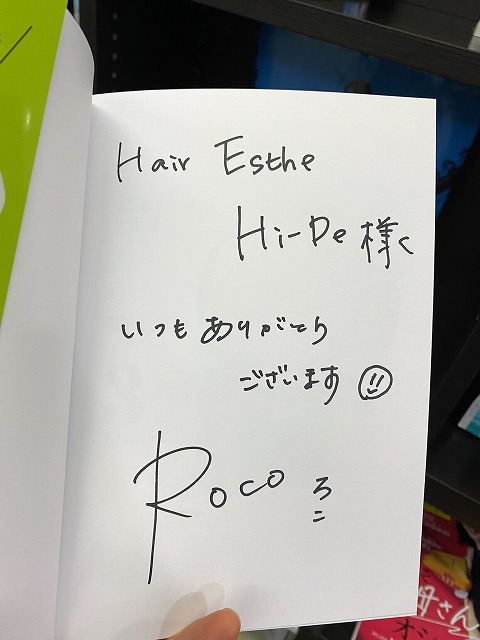 Hair Esthe
Hi-De 様く
いつも ありがとう
ございます
Roco ろ
こ
母さん
オン